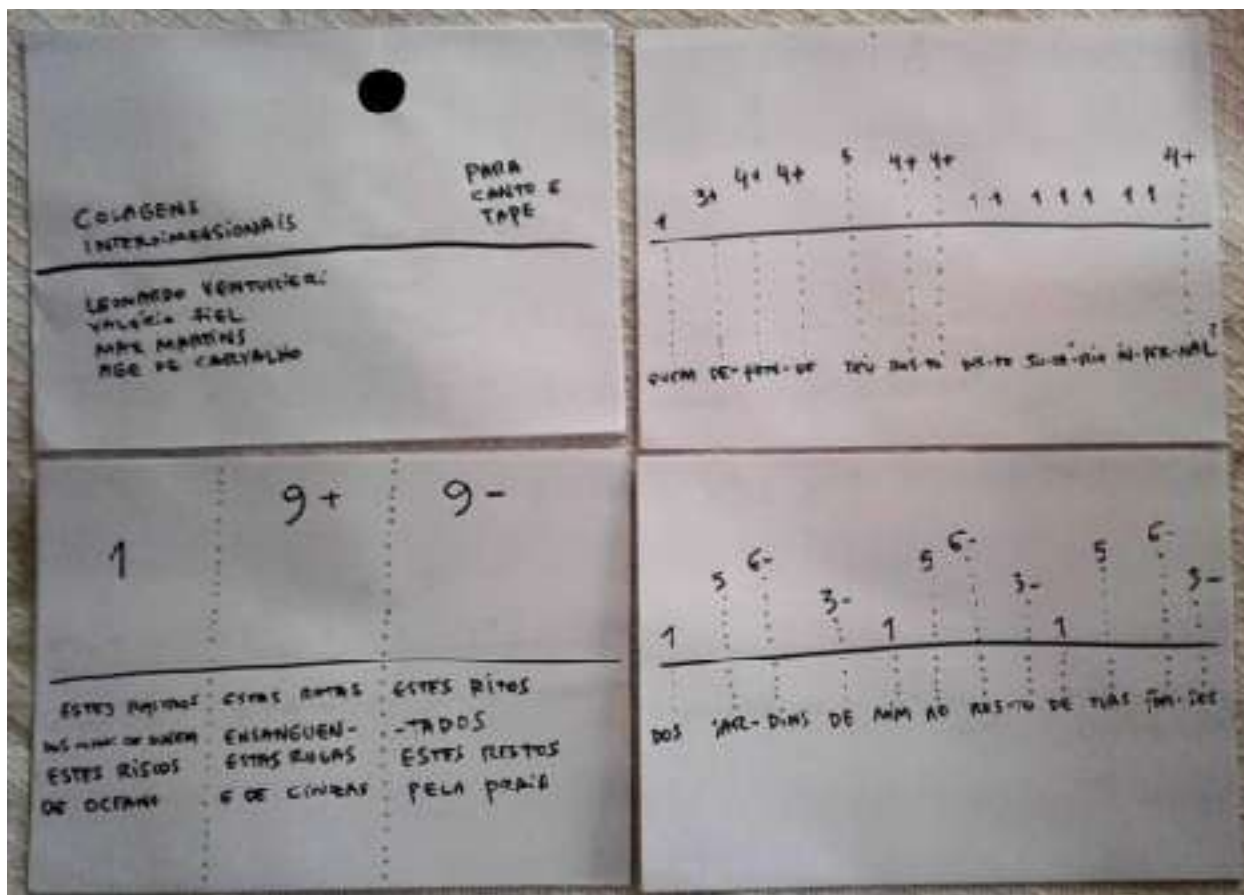 COLAGENS
INTERDIMENSIONAIS
PARA
CANTO E
TAPE
LEONARDO VENTURIERI
VALÉRIO FIEL
MAX MARTINS
AGE DE CARVALHO
1 3+ 4+ 4+ 5 4+ 4+ 1 1 1 1 1 1 1 4+
QUEM DE-FEN-DE TEU ROS-TO DES-TE SU-DÁ-RIO IN-FER-NAL?
1 9+ 9-
ESTES RASTROS ESTAS ROTAS ESTES RITOS
ENSANGUEN- -TADOS
ESTES RISCOS ESTAS RUGAS ESTES RESTOS
DE OCEANO E DE CINZAS PELA PRAIA
1 5 6- 3- 1 5 6- 3- 1 5 6- 3-
DOS JAR-DINS DE MIM AO ROS-TO DE TUAS